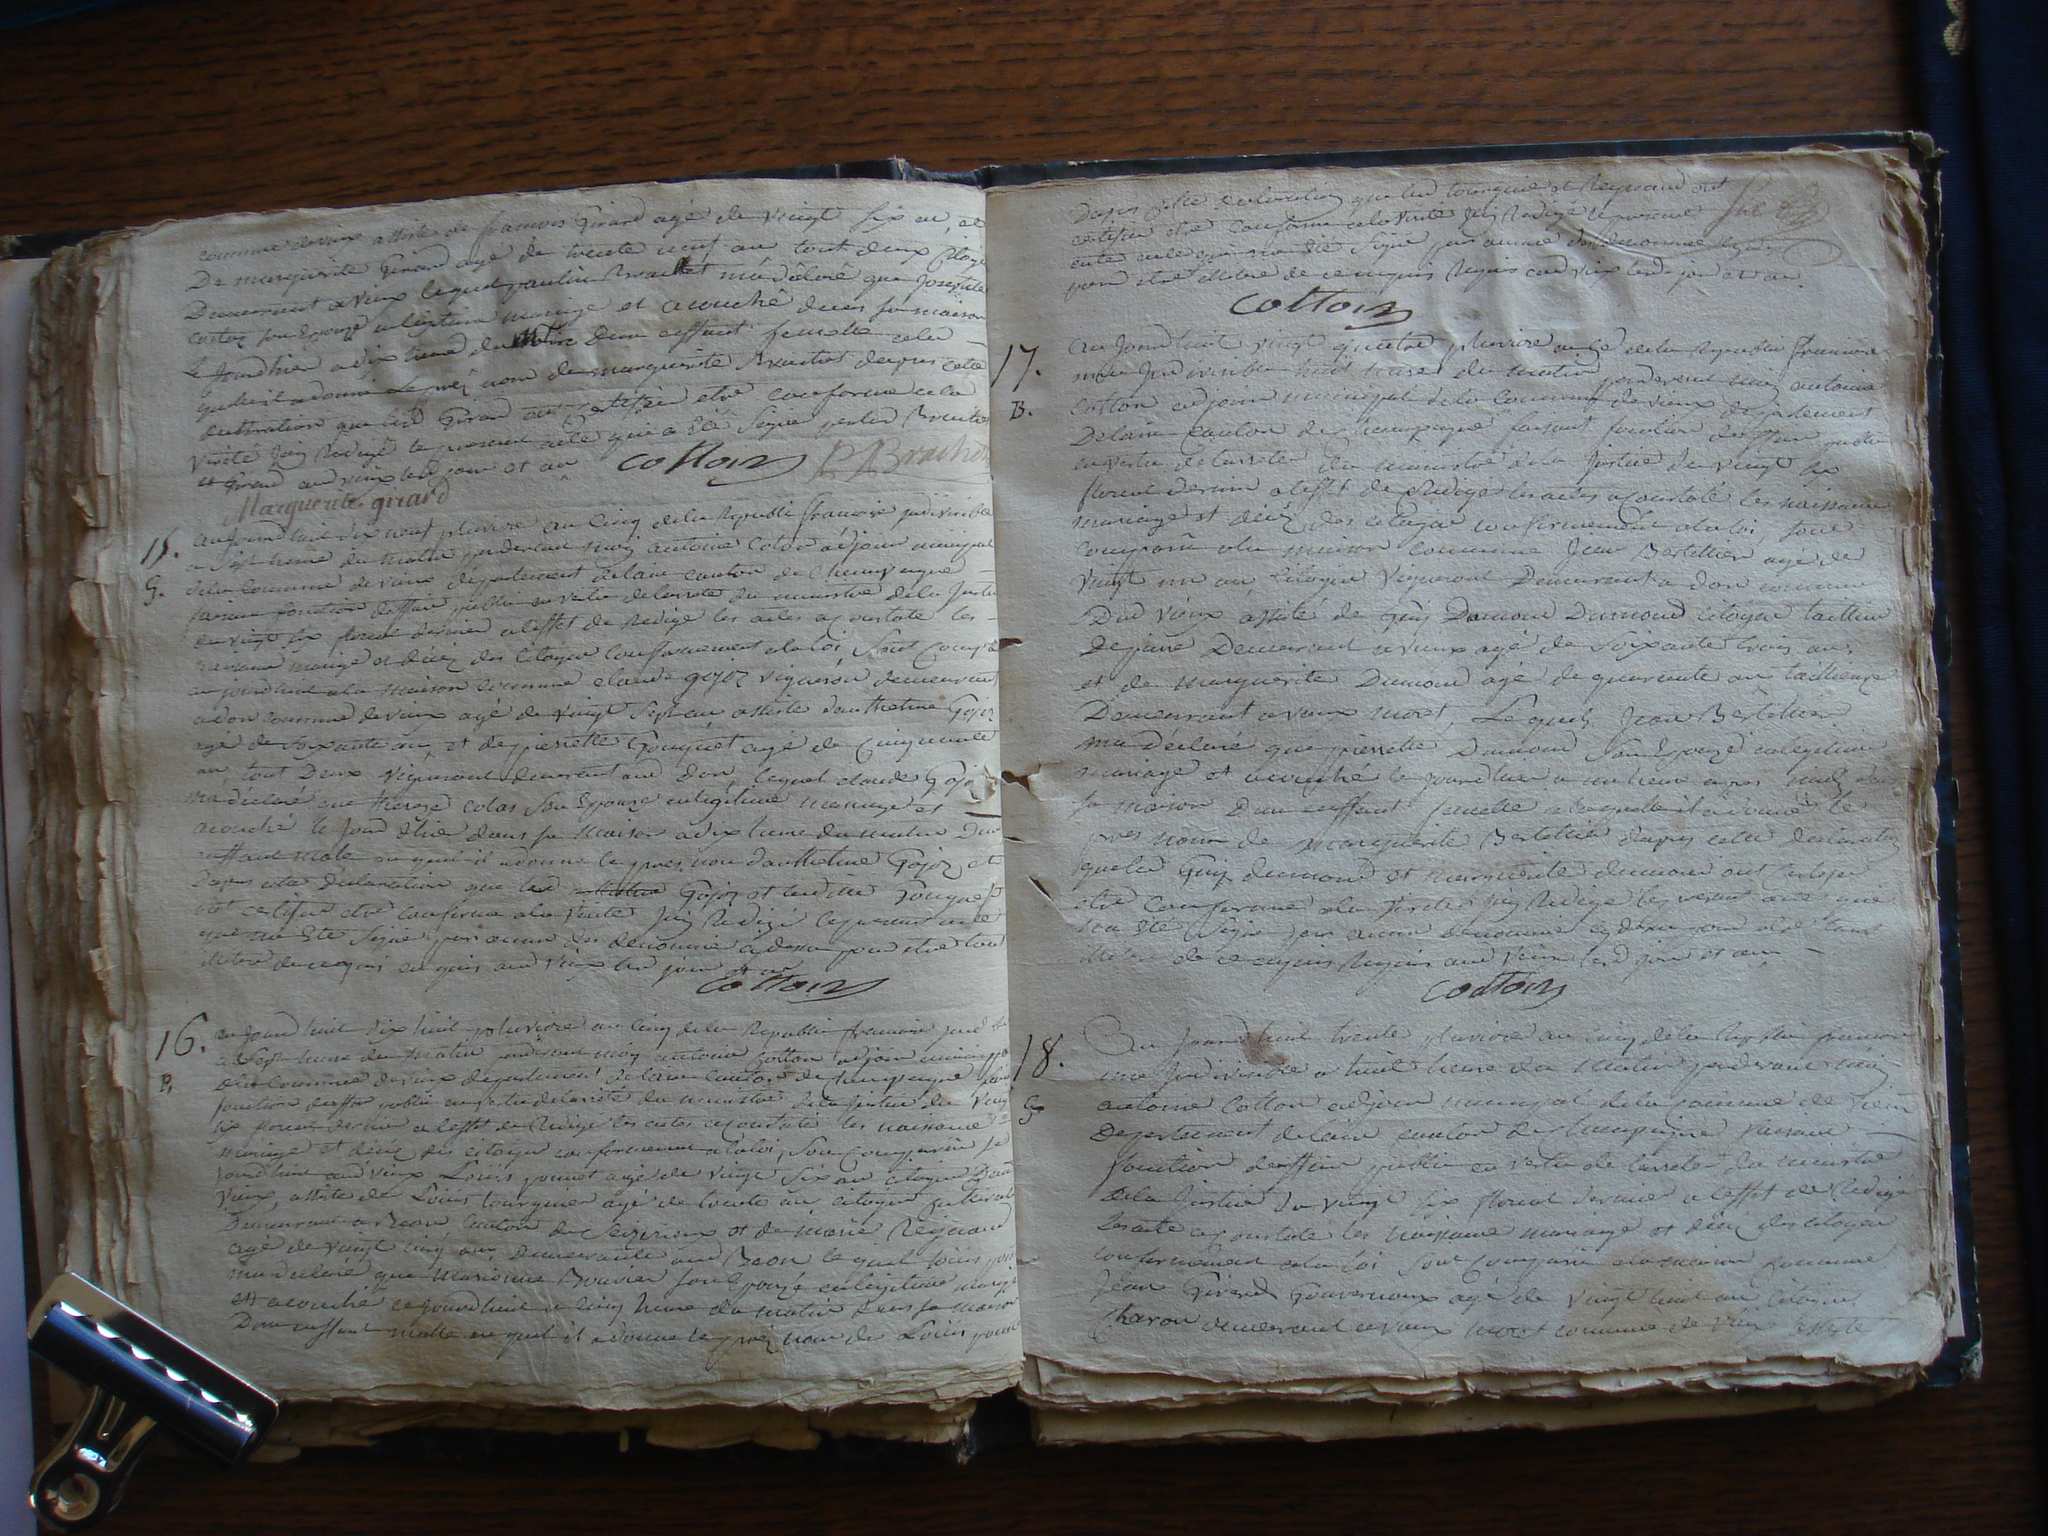 comme devieux assisté de francois Girard agé de vingt six an, et
De marguerite Girard agé de trente neuf an tout deux
Demeurant a vieux lequel paulin Brachet ma déclaré que Josephte
son Epouze en legitime mariage et acouché dans sa maison
le Jourdhier a dix heure du matin Dun enffant femelle
quelle il a donné le nom de marguerite Brachet dapres cette
declaration que Girard ont certifié etre conforme a la
vérité Jay Redigé le present acte qui a été Signé par led Brachet
et Girard aud vieux led jour et an cottoin P Brachet
Marguerite girard
15.
G.
aujourd huit dix neuf pluviose an Cinq dela Republi francoise indivisible
a Sept heure du matin pardevant moy antoine Coton adjoin municipal
dela Commune de vieux département delain canton de Champagne
faisant fonction doffier publi en vertu delarreté du ministre dela Justi
du vingt six floreal dernier a leffet de Redigé les actes a constaté les
naisance mariage et décez des Citoyen conformement a la loi, Sont Compa
aujourdhuit a la maison commune claude gojoz vigneron demeurant
a don commune devieux agé de vingt Sept an assisté danthelme Gojoz
agé de soixante an, et de pierrette Fouquet agé de Cinquante
an, tout Deux vigneront demeurant aud Don, lequel claude Gojoz
ma déclaré que thereze colas Son Epouze en legitime mariage et
acouché le Jour dhier dans sa maison a dix heure du matin Dun
enffant male au quel il a donné le prez nom danthelme Gojoz et
dapres cette déclaration que led Gojoz et lad Fouquet
ont certifié etre conforme a la vérité Jay Redigé le present acte
que na Eté Signé par aucun des denommé cy dessus pour etre tout
iletere de ce aquis aud vieux led jour et an
cottoin
16.
B.
aujourd huit dix huit pluviose an Cinq dela Republi francoise
a Sept heure du matin pardevant moy antoine Cotton adjoin municipal
dela Commune devieux département delain canton de Champagne
fonction doffier publi en vertu delarreté du ministre dela Justice du vingt
six floreal dernier a leffet de Redigé les actes a constaté les naisance
mariage et décez des citoyen conformement a la loi, Son Comparu
Jourdhuit aud vieux Louis ponnet agé de vingt Six an citoyen
vieux, assisté de Louis tourquier agé de trente an, citoyen
Demeurant a Beon canton de Seizerieux et de marie Reynaud
agé de vingt cinq an demeurante aud Beon le quel Louis
ma déclaré que marianne Bouvier son Epouzé en legitime mariage
et acouché cejourdhuit a cinq heure du matin dans sa maison
Dun enffant malle au quel il a donné le prez nom de Louis ponnet
dapres cette declaration que led tourquier et Reynaud ont
certifié etre conforme a la vérité Jay Redigé le present
acte pas Signé par aucun
pour etre iletere de ce enquis Requis aud vieux led jour et an
cottoin
17.
B.
aujourdhuit vingt quatre pluviose an 5 dela Republi francoise
une Indivisible huit heure du matin pardevant moy antoine
Cotton adjoin municipal dela Commune de vieux département
Delain canton de Champagne faisant fonction doffier publi
en vertu delarreter du ministre dela Justice du vingt six
floreal dernier a leffet de Redigé les actes a constaté les naisance
mariage et décez des citoyen conformement a la loi, Sont
comparu a la maison commune Jean Berthellier agé de
vingt un an Citoyen vigneront Demeurant a don commune
Dud vieux assisté de Guy Dumond citoyen tailleur
De piere Demeurant a vieux agé de Soixante trois an,
et de marguerite Dumond agé de quarente an
Demeurant a vaux moret, Lequel Jean Bertellier
ma déclaré que pierrette Dumond Son Epouzé en legitime
mariage et acouché le jourdhier a une heure apres midy dans
sa maison Dun enffant femelle a laquelle il a donné le
prez nom de marguerite Bertellié dapres cette declaration
que led Guy dumond et marguerite dumond ont certifié
etre conforme a la vérité Jay Redigé le present acte que
na Eté Signé par aucun denommé cy dessus pour etre tout
iletere de ce enquis Requis aud vieux led jour et an
cottoin
18.
G
Aujourdhuit trente pluviose an cinq dela Republi francoise
une Indivisible a huit heure du matin pardevant moy
antoine Cotton adjoin municipal dela Commune de vieux
Département delain canton de Champagne faisant
fonction doffier publi en vertu de larreter du ministre
Dela Justice du vingt six floreal dernier a leffet de Redigé
les acte a constaté les naisance mariage et décez des citoyen
conformement a la loi Sont comparu a la maison commune
Jean Girerd Gouvernoux agé de vingt huit an Citoyen
charon demeurant a vaux moret commune de vieux assisté